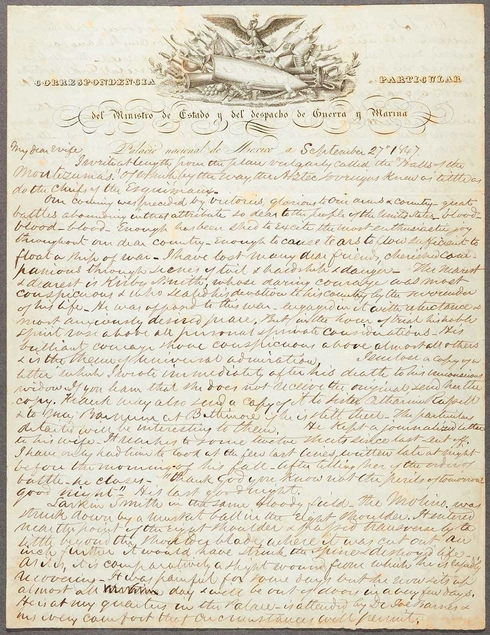 CORRESPONDENCIA PARTICULAR
del Ministro de Estado y del despacho de Guerra y Marina
Palacio nacional de Mexico a September 27th 1847
My dear wife
I write at length from the place vulgarly called the "Halls of the
Montezumas," of which by the way the Aztec sovereigns knew as little as
do the chiefs of the Esquimaux.
Our coming was preceded by victories, glorious to our arms & country - great
battles abounding in that attribute so dear to the people of the United States - blood -
blood - blood. Enough has been shed to excite the most enthusiastic joy
throughout our dear country - Enough to cause tears to flow sufficient to
float a ship of war. I have lost many dear friends, cherished com-
panions through scenes of toil & hardship & danger. The nearest
& dearest is Kirby Smith, whose daring courage was most
conspicuous & who sealed his devotion to his country by the surrender
of his life. He was opposed to this war - engaged in it with reluctance &
most anxiously desired peace. But in the hour of trial his bold
spirit rose above all personal & private considerations. His
brilliant courage shone conspicuous above almost all others
& is the theme of universal admiration. I enclose a copy of a
letter which I wrote immediately after his death to his
widow. If you learn that she does not receive the original send her the
copy. Frank may also send a copy of it to sister
& to at Baltimore if she is still there. The particular
details will be interesting to them. He kept a journalized letter
to his wife. It reaches to some twelve sheets since last sent off.
I have only had time to look at the few last lines, written late at night
before the morning of his fall. After telling her of the orders of
battle - he closes - "Thank God you know not the perils of tomorrow
good night." His last good night.
Larkin Smith in the same bloody field - the Molino, was
struck down by a musket ball in the right shoulder. It entered
near the point of the right shoulder & passed transversely to a
little beyond the shoulder blade, where it was cut out. An
inch further it would have struck the spine & destroyed life.
As it is, it is comparatively a slight wound from which he is rapidly
recovering. It was painful for some days but he now sits up
almost all day & will be out of doors in a very few days.
He is at my quarters in the Palace - is attended by Dr. Barnes &
has every comfort that circumstances will permit.